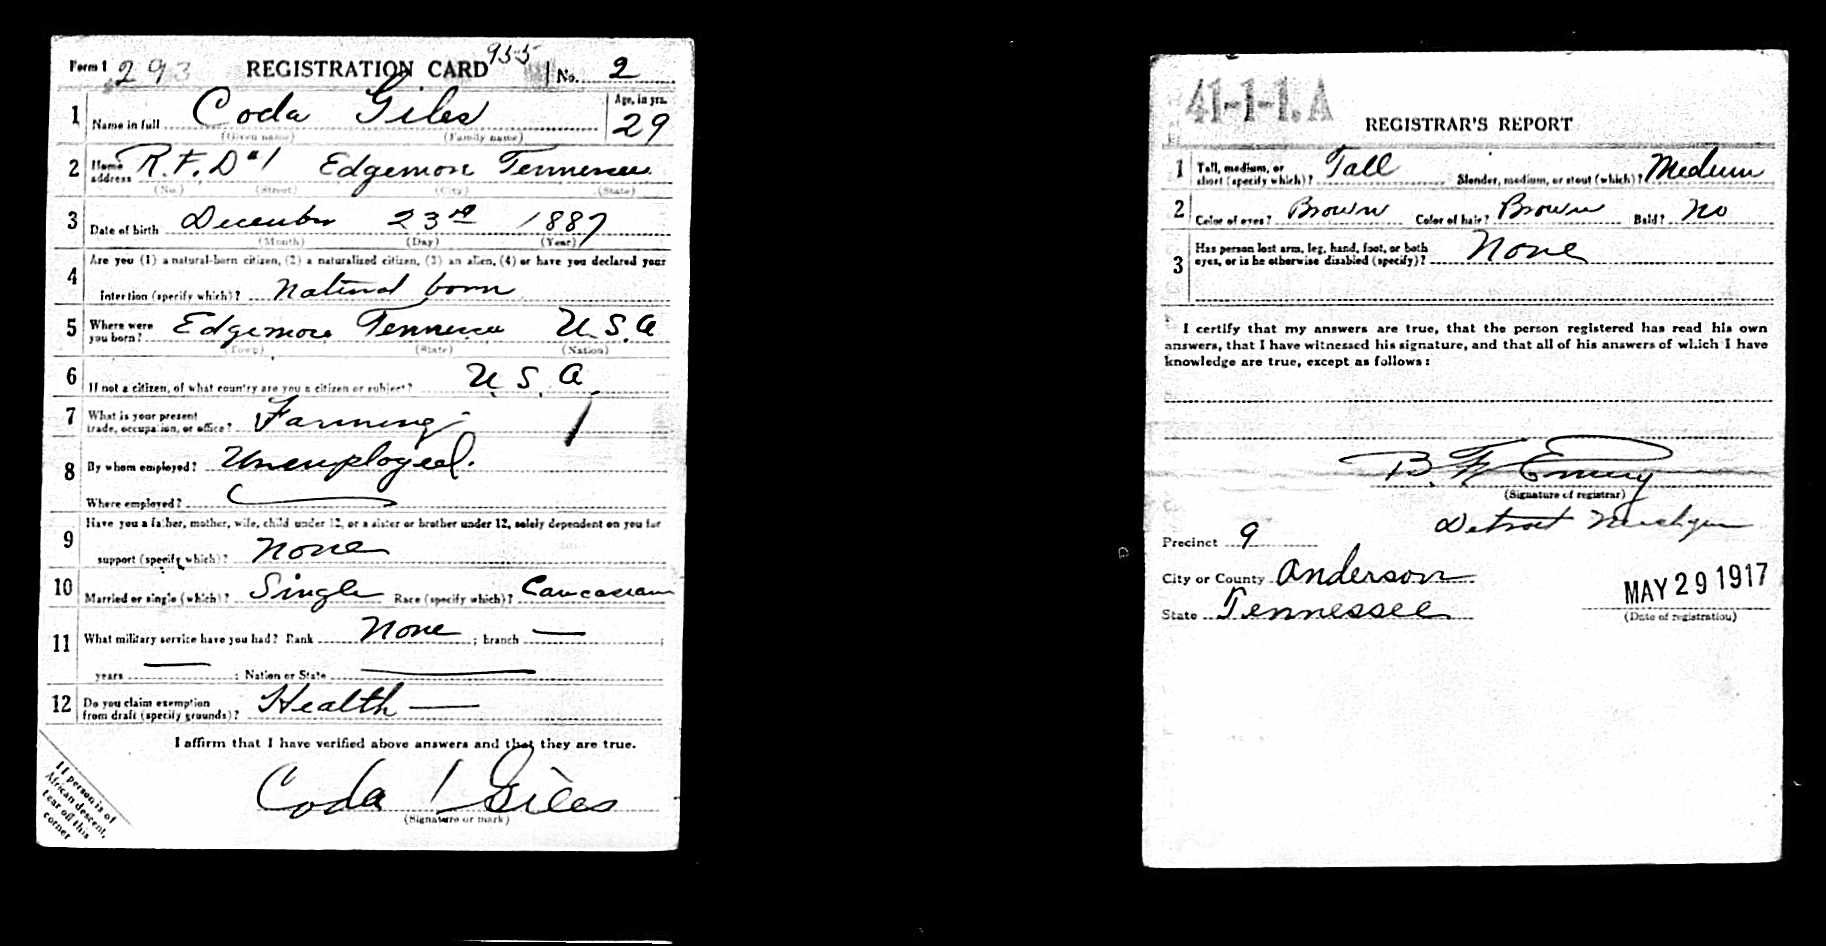 Form 1 293 REGISTRATION CARD 955 No. 2
1 Name in full Coda Giles Age, in yrs. 29
(Given name) (Family name)
2 Home address R.F.D #1 Edgemore Tennessee
(No.) (Street) (City) (State)
3 Date of birth December 23rd 1887
(Month) (Day) (Year)
4 Are you (1) a natural-born citizen, (2) a naturalized citizen, (3) an alien, (4) or have you declared your
intention (specify which)? Natural born
5 Where were you born? Edgemore Tennessee U.S.A
(Town) (State) (Nation)
6 If not a citizen, of what country are you a citizen or subject? U.S.A.
7 What is your present trade, occupation, or office? Farming
8 By whom employed? Unemployed.
Where employed?
9 Have you a father, mother, wife, child under 12, or a sister or brother under 12, solely dependent on you for
support (specify which)? None
10 Married or single (which)? Single Race (specify which)? Caucasian
11 What military service have you had? Rank None ; branch — ;
years — ; Nation or State —
12 Do you claim exemption from draft (specify grounds)? Health —
I affirm that I have verified above answers and that they are true.
Coda Giles
(Signature or mark)
If person is of
African descent,
tear off this
corner
41-1-1.A
REGISTRAR'S REPORT
1 Tall, medium, or short (specify which)? Tall Slender, medium, or stout (which)? Medium
2 Color of eyes? Brown Color of hair? Brown Bald? No
3 Has person lost arm, leg, hand, foot, or both
eyes, or is he otherwise disabled (specify)? None
I certify that my answers are true, that the person registered has read his own
answers, that I have witnessed his signature, and that all of his answers of which I have
knowledge are true, except as follows:
B. F. Emery
(Signature of registrar)
Detroit Michigan
Precinct 9
City or County Anderson
State Tennessee
MAY 29 1917
(Date of registration)